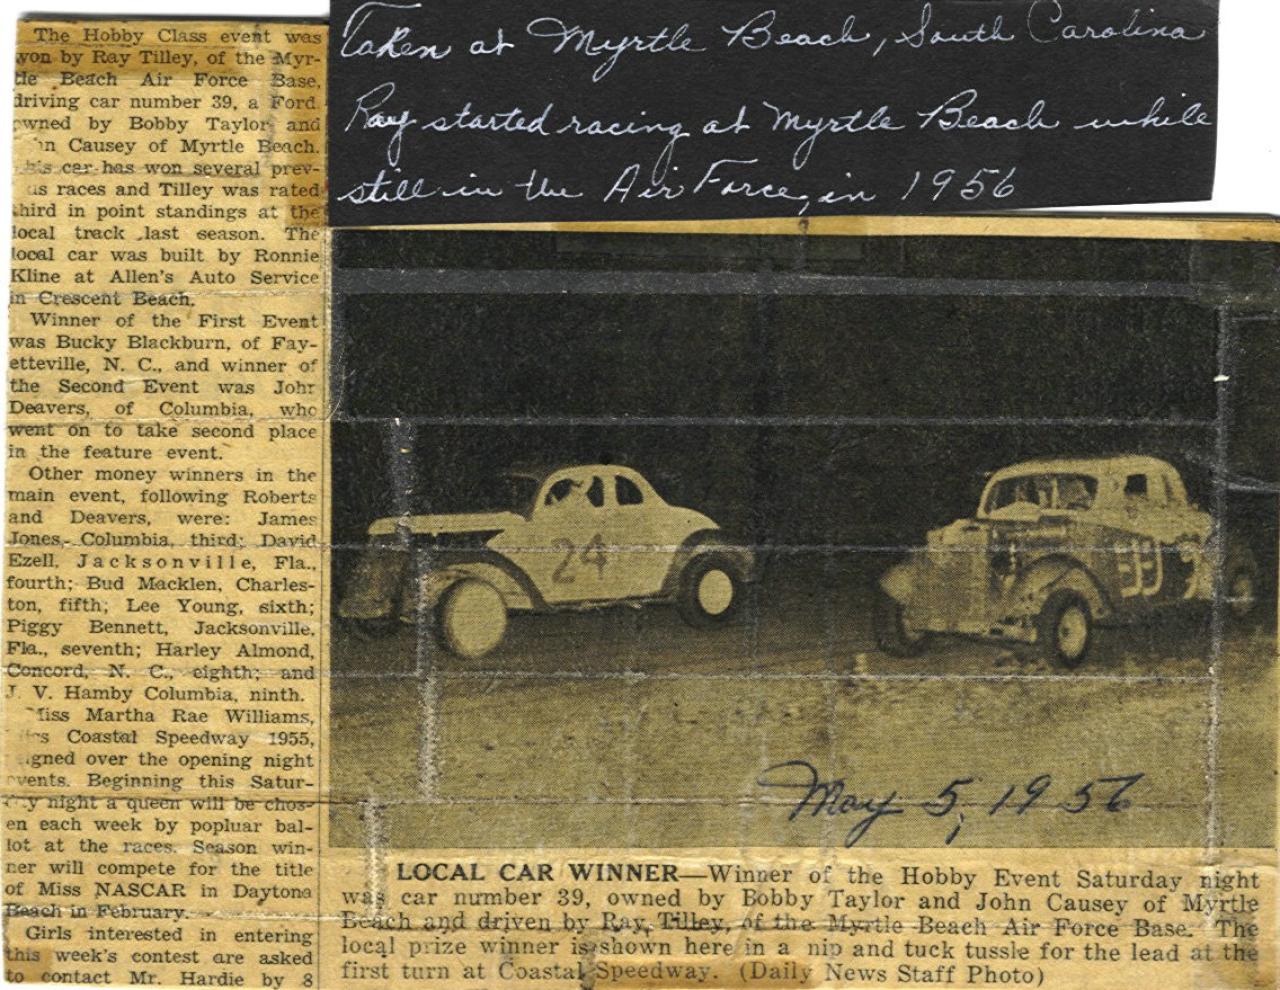 Taken at Myrtle Beach, South Carolina
Ray started racing at Myrtle Beach while
still in the Air Force, in 1956
The Hobby Class event was
won by Ray Tilley, of the Myr-
tle Beach Air Force Base,
driving car number 39, a Ford
owned by Bobby Taylor and
Causey of Myrtle Beach.
his car has won several prev-
races and Tilley was rated
third in point standings at the
local track last season. The
local car was built by Ronnie
Kline at Allen's Auto Service
in Crescent Beach.
Winner of the First Event
was Bucky Blackburn, of Fay-
etteville, N. C., and winner of
the Second Event was John
Deavers, of Columbia, who
went on to take second place
in the feature event.
Other money winners in the
main event, following Roberts
and Deavers, were: James
Jones, Columbia, third; David
Ezell, Jacksonville, Fla.,
fourth; Bud Macklen, Charles-
ton, fifth; Lee Young, sixth;
Piggy Bennett, Jacksonville,
Fla., seventh; Harley Almond,
Concord, N. C., eighth; and
J. V. Hamby Columbia, ninth.
Miss Martha Rae Williams,
Coastal Speedway 1955,
over the opening night
events. Beginning this Satur-
night a queen will be chos-
en each week by popluar bal-
lot at the races. Season win-
ner will compete for the title
of Miss NASCAR in Daytona
Beach in February.
Girls interested in entering
this week's contest are asked
to contact Mr. Hardie by 8
24
39
May 5, 1956
LOCAL CAR WINNER—Winner of the Hobby Event Saturday night
was car number 39, owned by Bobby Taylor and John Causey of Myrtle
Beach and driven by Ray Tilley, of the Myrtle Beach Air Force Base. The
local prize winner is shown here in a nip and tuck tussle for the lead at the
first turn at Coastal Speedway. (Daily News Staff Photo)